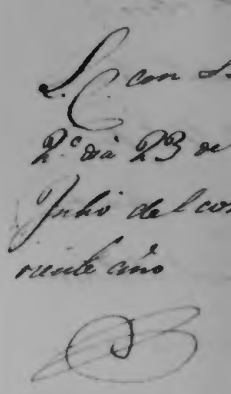 con
2.º día 23 de
Julio del cor
riente año